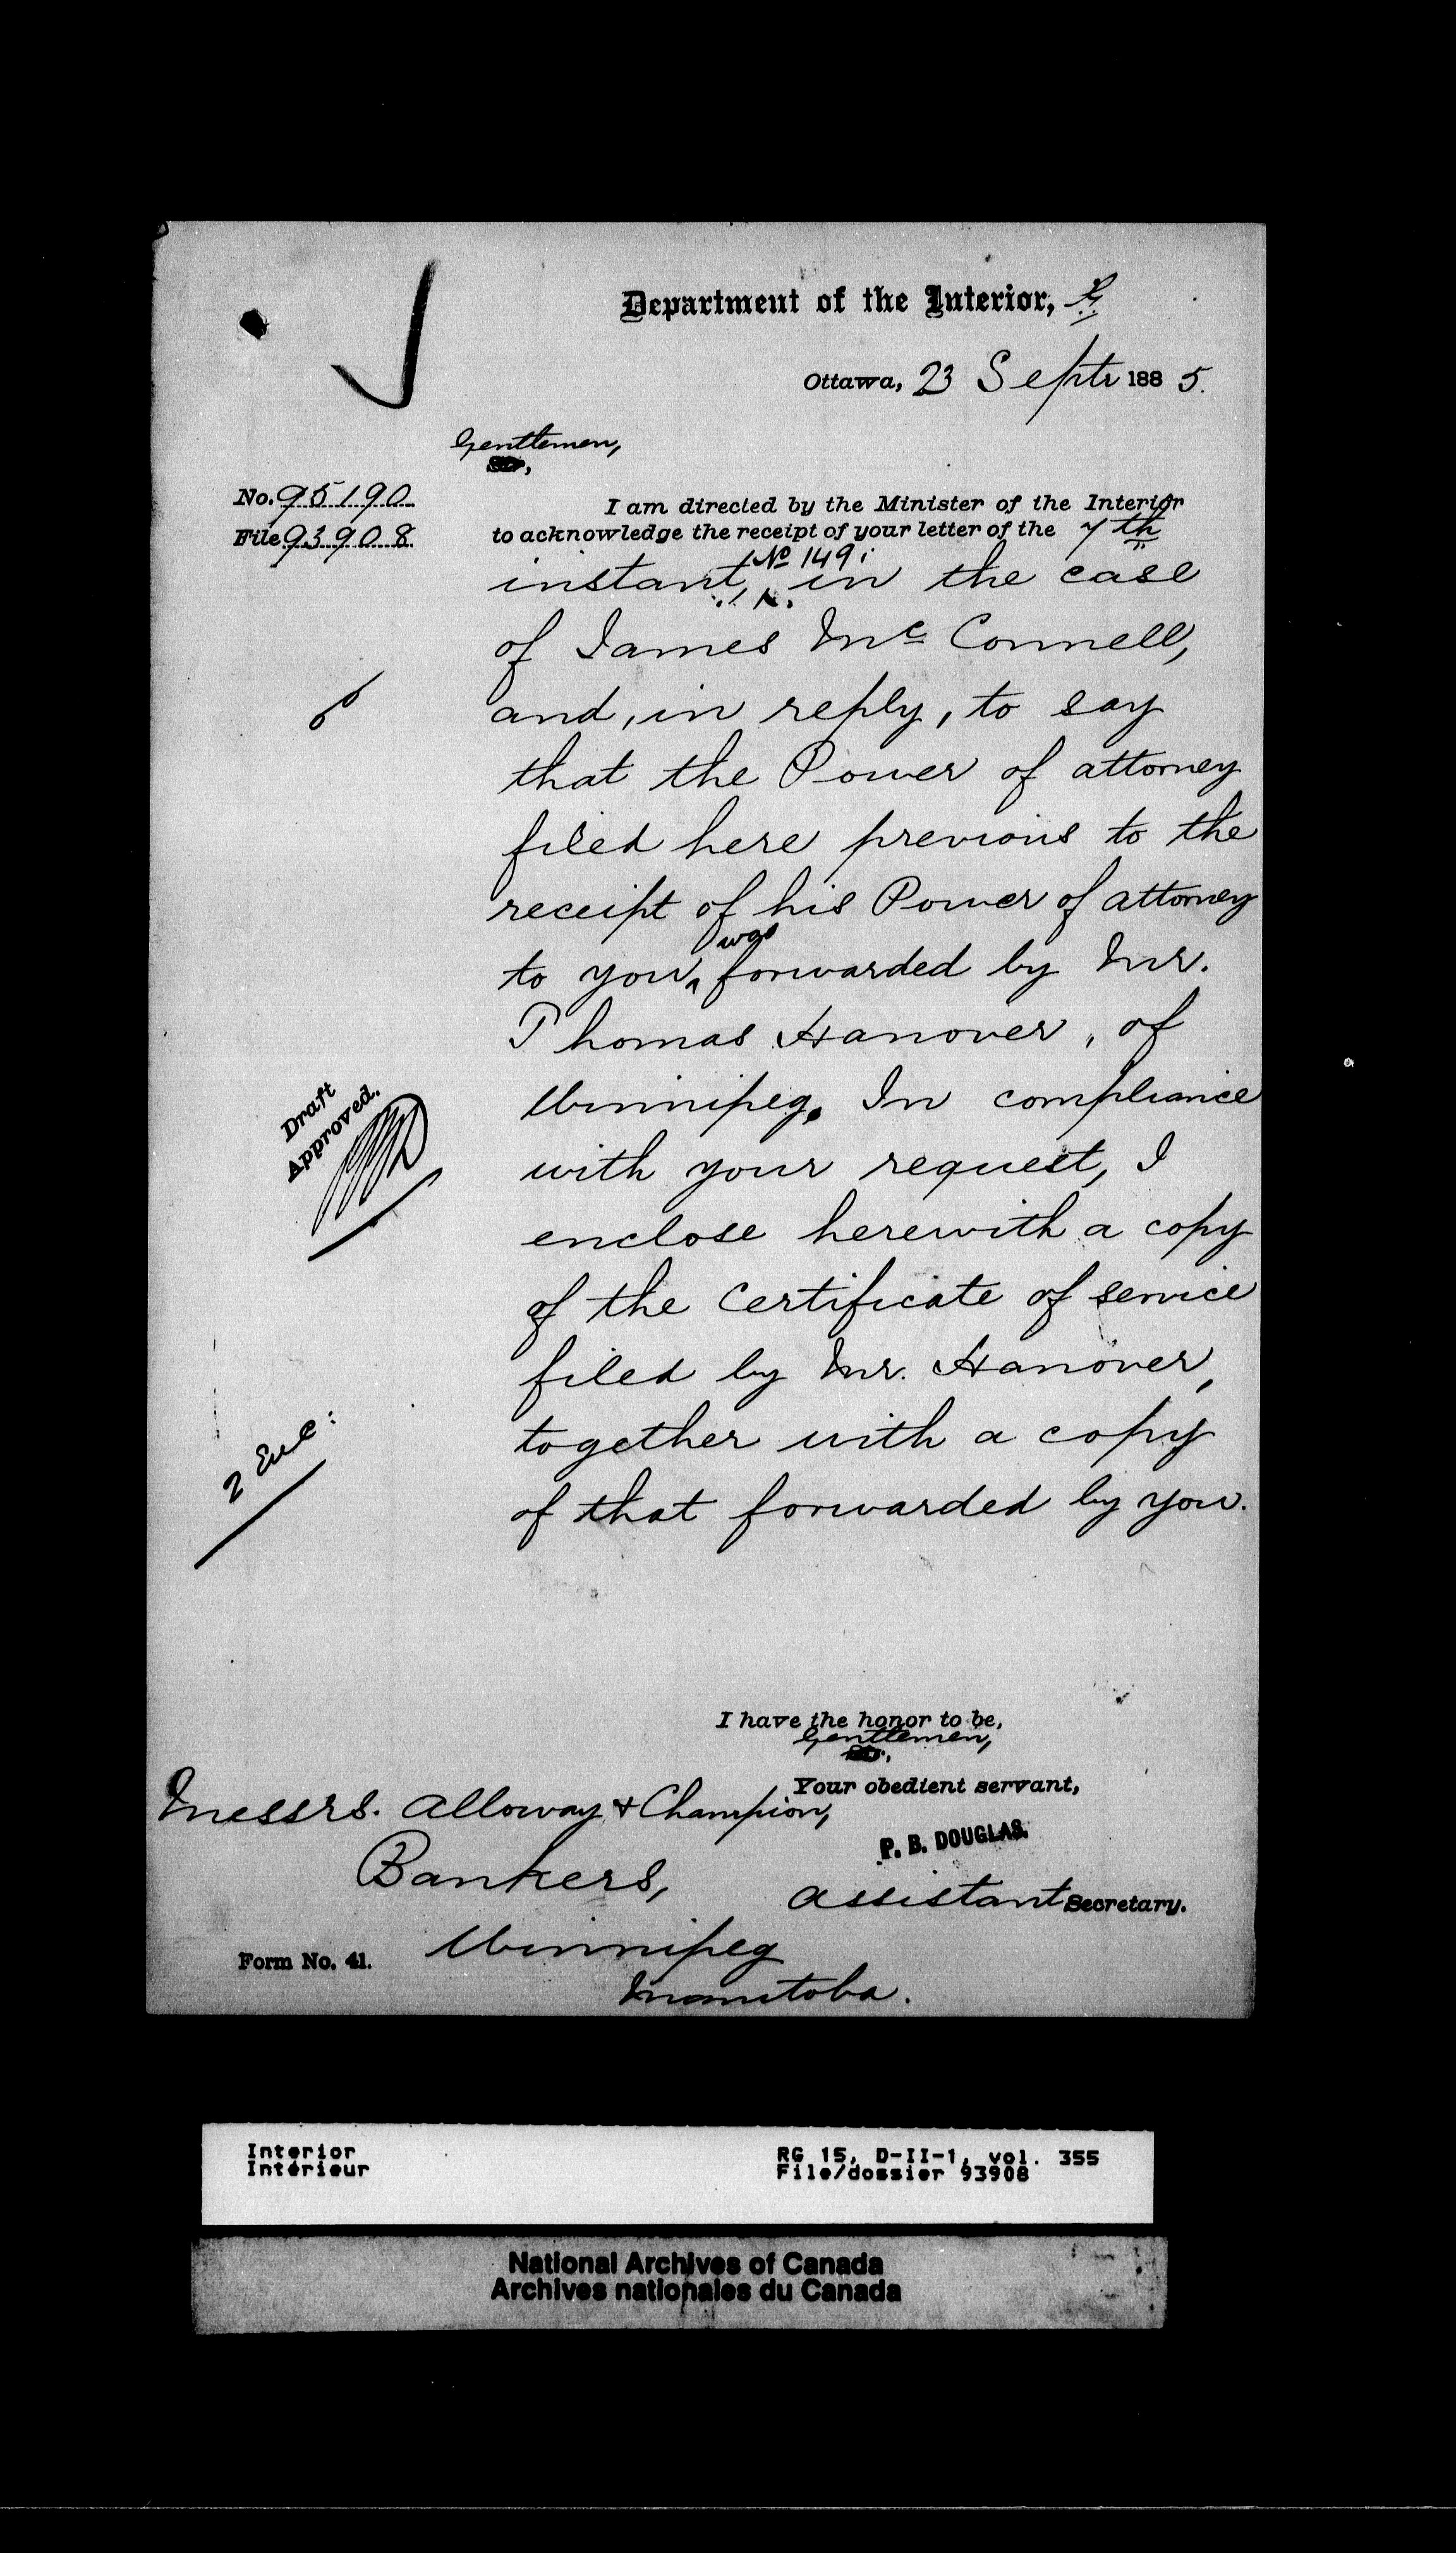 Department of the Interior,
Ottawa, 23 Septr 1885.
Gentlemen,
Sir,
No. 95190
File 93908
I am directed by the Minister of the Interior
to acknowledge the receipt of your letter of the 7th
No 149
instant, in the case
of James Mc Connell,
and, in reply, to say
that the Power of attorney
filed here previous to the
receipt of his Power of attorney
was
to you, forwarded by Mr.
Thomas Hanover, of
Winnipeg. In compliance
with your request, I
enclose herewith a copy
of the Certificate of service
filed by Mr. Hanover,
together with a copy
of that forwarded by you.
Draft
Approved.
2 Enc:
I have the honor to be,
Gentlemen,
Sir,
Your obedient servant,
Messrs. Alloway & Champion,
P. B. DOUGLAS.
Bankers,
Assistant Secretary.
Winnipeg
Form No. 41.
Manitoba.
Interior
Intérieur
RG 15, D-II-1, vol. 355
File/dossier 93908
National Archives of Canada
Archives nationales du Canada